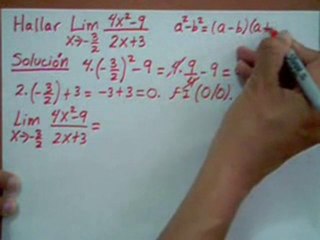 Hallar Lim x→-3/2 4x²-9 / 2x+3 a²-b²=(a-b)(a+
Solución 4·(-3/2)²-9=4·9/4-9=
2·(-3/2)+3=-3+3=0. (0/0).
Lim x→-3/2 4x²-9 / 2x+3 =